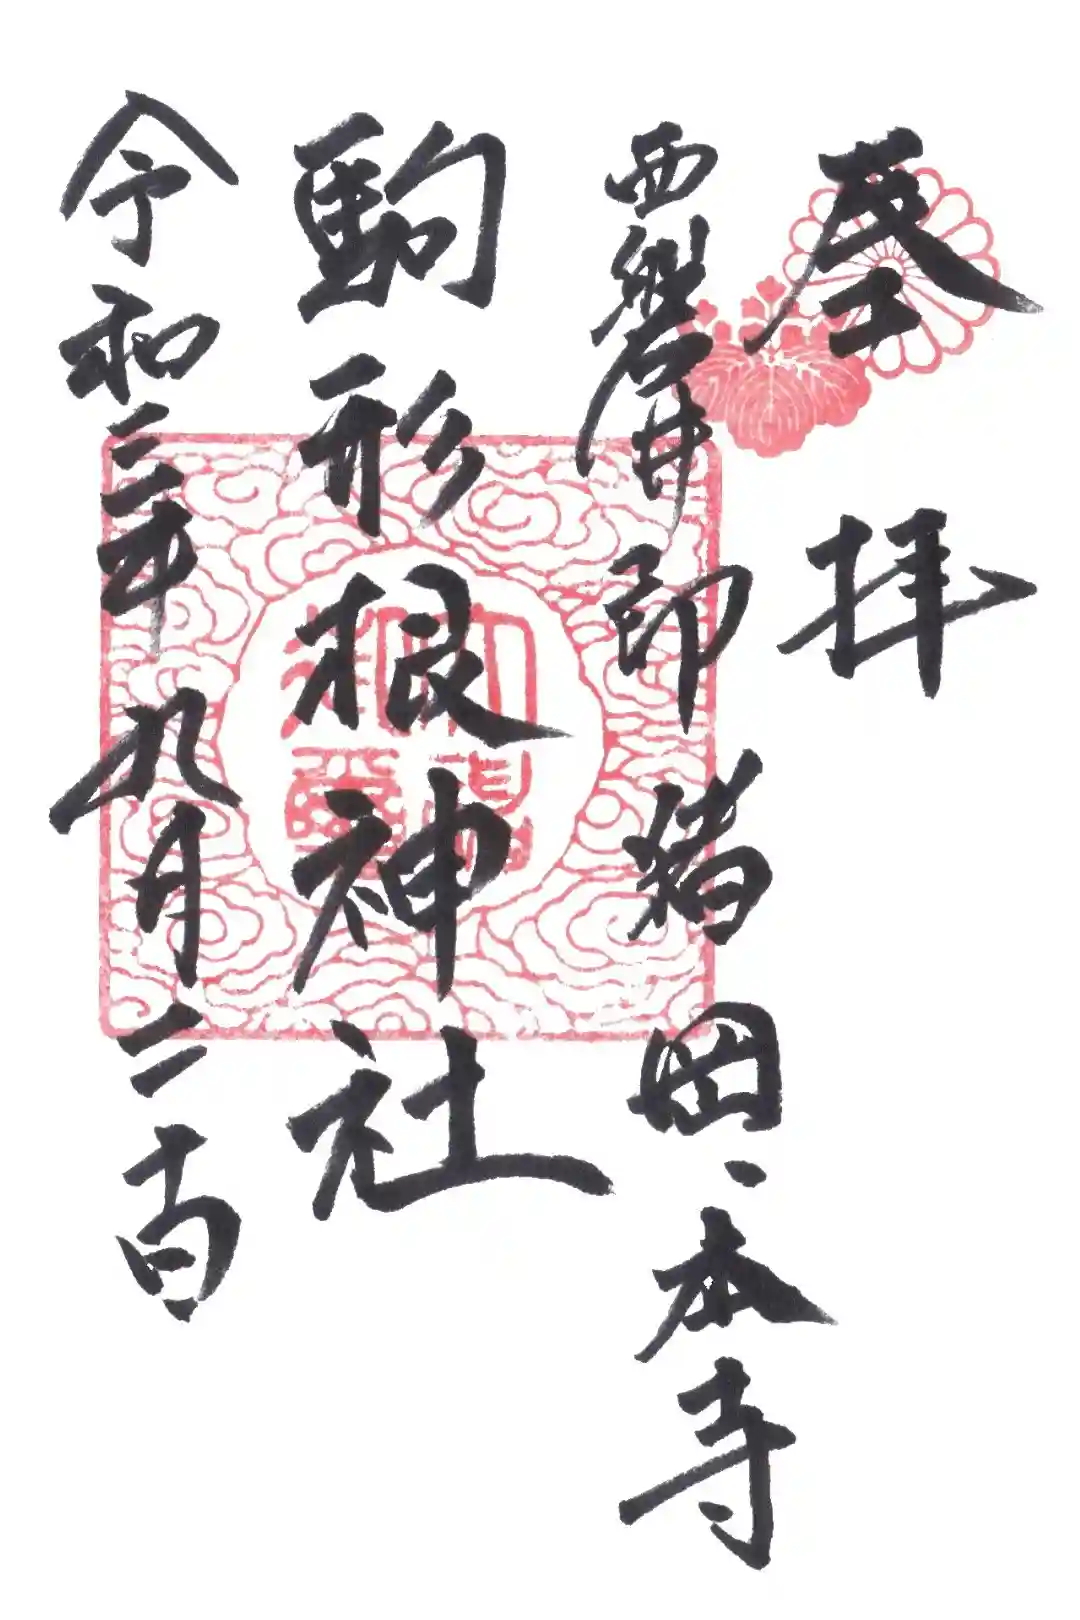 奉拝
西磐井郡猪岡、本寺
駒形根神社
令和三年九月二十日